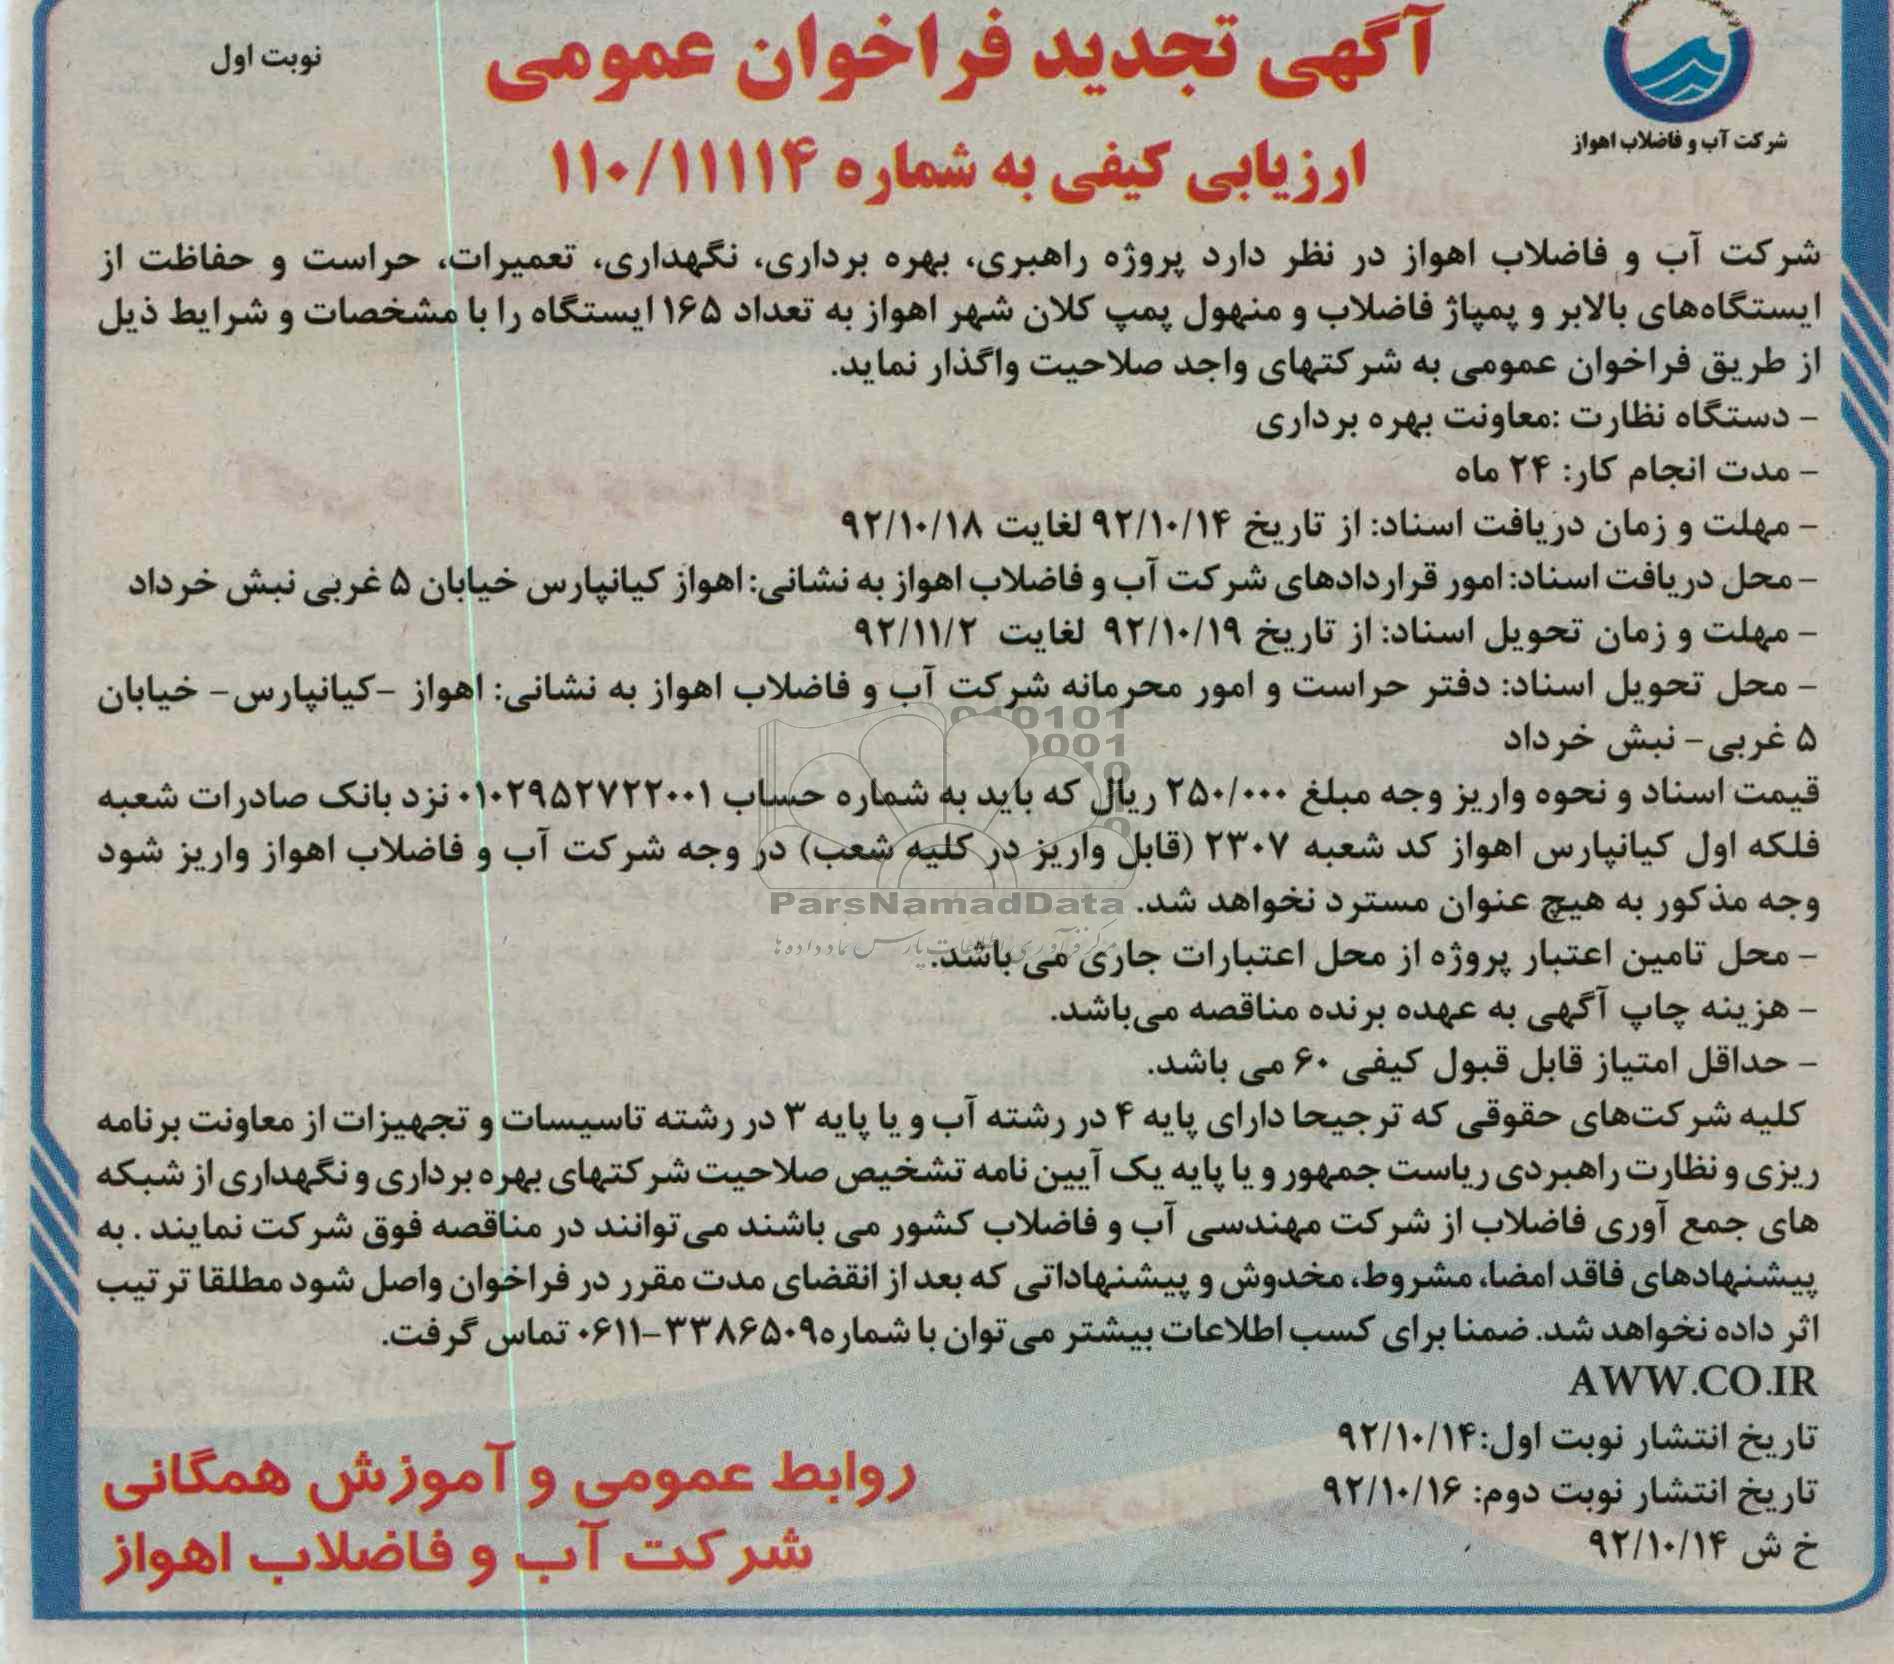 شرکت آب و فاضلاب اهواز
آگهی تجدید فراخوان عمومی
نوبت اول
ارزیابی کیفی به شماره ۱۱۰/۱۱۱۱۴
شرکت آب و فاضلاب اهواز در نظر دارد پروژه راهبری، بهره برداری، نگهداری، تعمیرات، حراست و حفاظت از
ایستگاه‌های بالابر و پمپاژ فاضلاب و منهول پمپ کلان شهر اهواز به تعداد ۱۶۵ ایستگاه را با مشخصات و شرایط ذیل
از طریق فراخوان عمومی به شرکتهای واجد صلاحیت واگذار نماید.
- دستگاه نظارت :معاونت بهره برداری
- مدت انجام کار: ۲۴ ماه
- مهلت و زمان دریافت اسناد: از تاریخ ۹۲/۱۰/۱۴ لغایت ۹۲/۱۰/۱۸
- محل دریافت اسناد: امور قراردادهای شرکت آب و فاضلاب اهواز به نشانی: اهواز کیانپارس خیابان ۵ غربی نبش خرداد
- مهلت و زمان تحویل اسناد: از تاریخ ۹۲/۱۰/۱۹ لغایت ۹۲/۱۱/۲
- محل تحویل اسناد: دفتر حراست و امور محرمانه شرکت آب و فاضلاب اهواز به نشانی: اهواز -کیانپارس- خیابان
۵ غربی- نبش خرداد
قیمت اسناد و نحوه واریز وجه مبلغ ۲۵۰/۰۰۰ ریال که باید به شماره حساب ۰۱۰۲۹۵۲۷۲۲۰۰۱ نزد بانک صادرات شعبه
فلکه اول کیانپارس اهواز کد شعبه ۲۳۰۷ (قابل واریز در کلیه شعب) در وجه شرکت آب و فاضلاب اهواز واریز شود
وجه مذکور به هیچ عنوان مسترد نخواهد شد.
ParsNamadData
مرکز فرآوری اطلاعات پارس نماد داده ها
- محل تامین اعتبار پروژه از محل اعتبارات جاری می باشد.
- هزینه چاپ آگهی به عهده برنده مناقصه می‌باشد.
- حداقل امتیاز قابل قبول کیفی ۶۰ می باشد.
کلیه شرکت‌های حقوقی که ترجیحا دارای پایه ۴ در رشته آب و یا پایه ۳ در رشته تاسیسات و تجهیزات از معاونت برنامه
ریزی و نظارت راهبردی ریاست جمهور و یا پایه یک آیین نامه تشخیص صلاحیت شرکتهای بهره برداری و نگهداری از شبکه
های جمع آوری فاضلاب از شرکت مهندسی آب و فاضلاب کشور می باشند می‌توانند در مناقصه فوق شرکت نمایند . به
پیشنهادهای فاقد امضا، مشروط، مخدوش و پیشنهاداتی که بعد از انقضای مدت مقرر در فراخوان واصل شود مطلقا ترتیب
اثر داده نخواهد شد. ضمنا برای کسب اطلاعات بیشتر می‌توان با شماره۳۳۸۶۵۰۹-۰۶۱۱ تماس گرفت.
AWW.CO.IR
تاریخ انتشار نوبت اول:۹۲/۱۰/۱۴
تاریخ انتشار نوبت دوم: ۹۲/۱۰/۱۶
خ ش ۹۲/۱۰/۱۴
روابط عمومی و آموزش همگانی
شرکت آب و فاضلاب اهواز